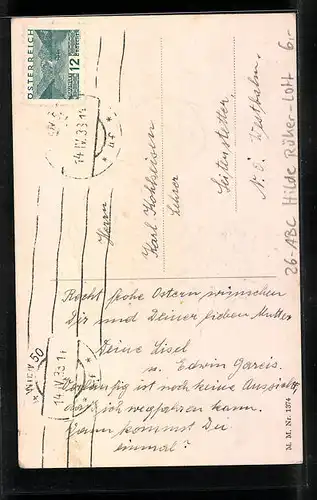 ÖSTERREICH
12
14. IV. 33. 11
Herrn
Karl Kohlseisen
Lehrer
Seitenstetten
N. Ö. Westbahn.
26-ABC Hilde Rüker-Lott 6.-
Recht frohe Ostern wünschen
Dir und Deiner lieben Mutter
Deine Lisel
u. Edwin Gareis.
Vorläufig ist noch keine Aussicht,
daß ich wegfahren kann.
Wann kommst Du
einmal?
WIEN 50
14. IV. 33. 11
M. M. Nr. 1374